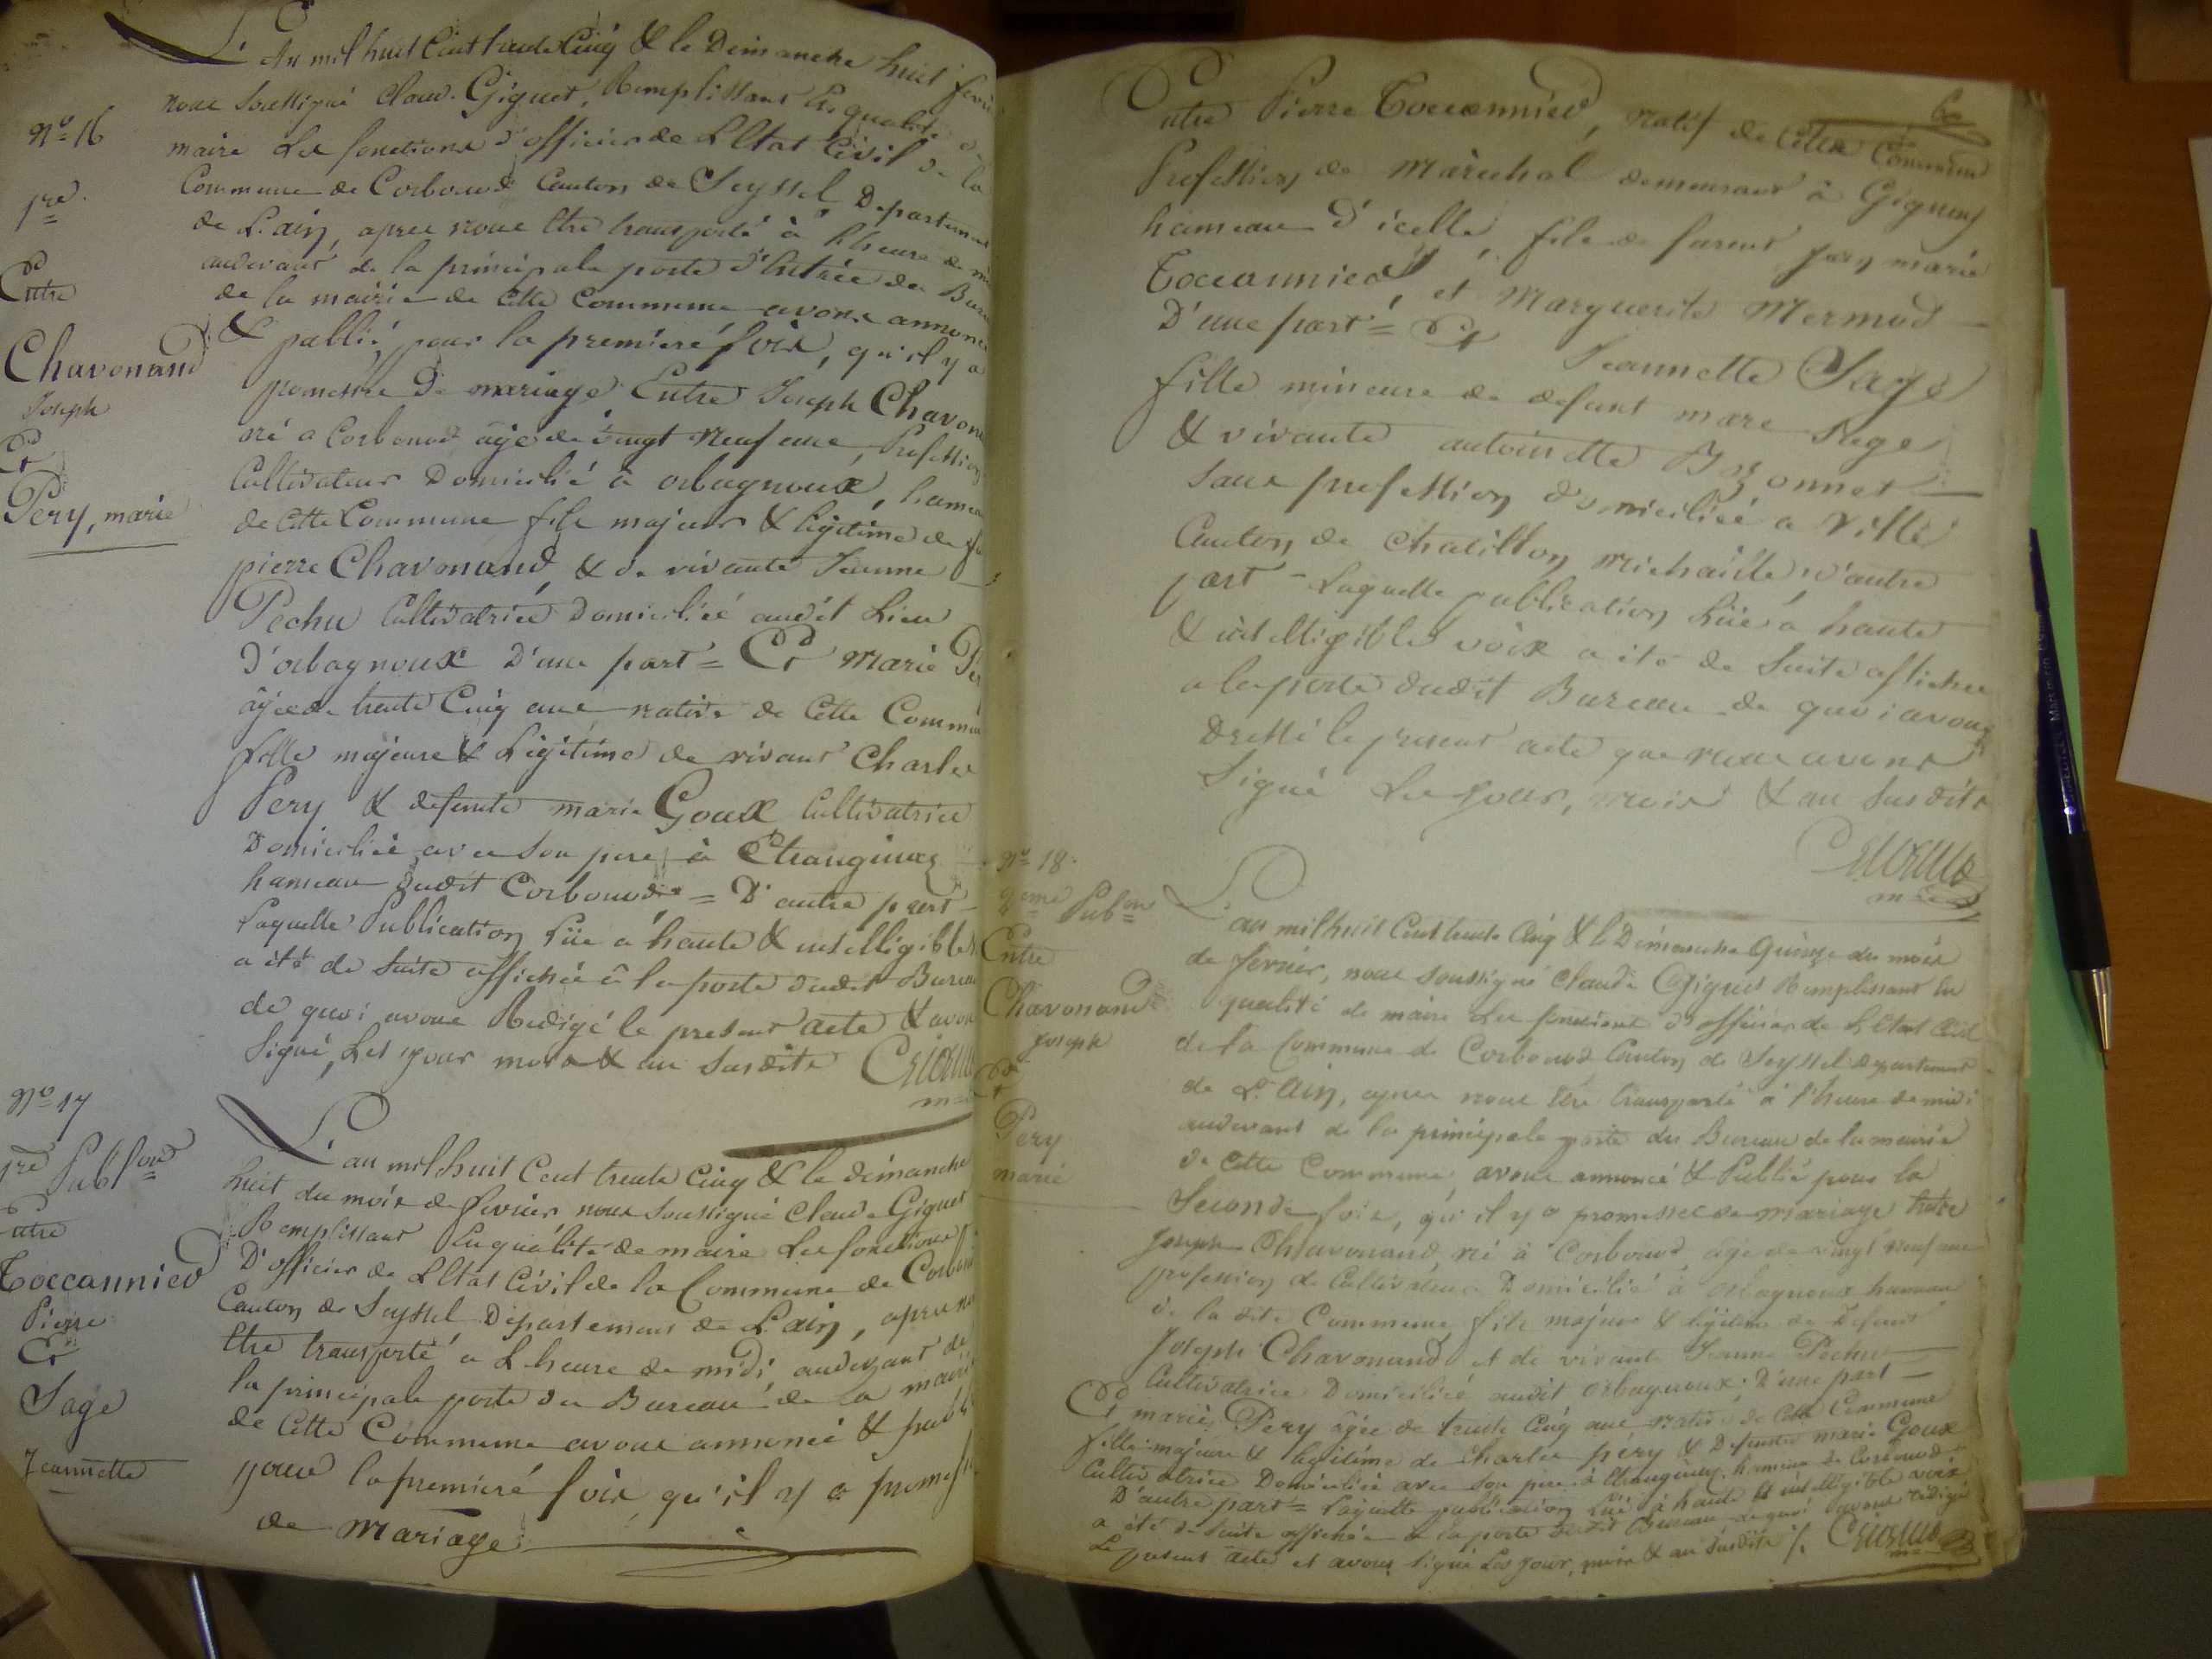 N° 16
1re
Entre
Chavonand
Joseph
Et
Pery, marie
L'An mil huit Cent trente Cinq & le Dimanche huit fevri
nous soussigné Claude Giguet, Remplissant En qualité de
maire Les fonctions d'officier de L'Etat Civil de la
Commune de Corbonod Canton de Seyssel Departement
de L'ain, apres nous Etre transporté à l'heure de mi
audevant de la principale porte d'Entrée du Bure
de la mairie de Cette Commune avons annoncé
& publié pour la premiére fois, qu'il y a
promesse de mariage Entre Joseph Chavona
né a Corbonod âgé de vingt neuf ans, Profession
Cultivateur Domicilié à orbagnoux, hamea
de Cette Commune fils majeur & légitime de
pierre Chavonand, & de vivante Jeanne
Pechu Cultivatrice Domiciliée audit Lieu
D'orbagnoux D'une part = Et Marie Per
âgée de trente Cinq ans native de Cette Commu
fille majeure & Légitime de vivant Charles
Pery & defunte marie Goux Cultivatrice
Domiciliée avec son pere à Etranginaz
hameau dudit Corbonod = D'autre part
Laquelle Publication Lüe à haute & intelligible
a été de suite affichée à la porte dudit Bureau
de quoi avons Redigé le present acte & avon
Signé, Les jour mois & an susdits
N° 17
1re Publion
Entre
Toccannied
Pierre
Et
Sage
Jeannette
L'an mil huit Cent trente Cinq & le dimanche
huit du mois de fevrier nous soussigné Claude Giguet
Remplissant En qualité de maire Les fonctions
D'officier de L'Etat Civil de la Commune de Corbono
Canton de Seyssel Département de L'ain, apres nous
Etre transporté a L'heure de midi, audevant de
la principale porte du Bureau de la mairi
de Cette Commune avons annoncé & publi
pour la premiére fois qu'il y a promess
de Mariage
Entre Pierre Toccannied, natif de Cette Commune
Profession de Maréchal demeurant à Gignez
hameau d'icelle, fils de furent jean marie
Toccannied, et Marguerite Mermod
D'une part = Et Jeannette Sage
fille mineure de defunt marc Sage
& vivante antoinette Bozonnet
sans profession domiciliée a Ville
Canton de Chatillon michaille, d'autre
part - Laquelle publication Lüe à haute
& intelligible voix a été de Suite affichée
a la porte dudit Bureau de quoi avons
Dressé le present acte que nous avons
Signé Les jour, mois & an susdits
N° 18
2eme Pubon
Entre
Chavonand
Joseph
Et
Pery
marie
L'an mil huit Cent trente Cinq & le Dimanche Quinze du mois
de fevrier, nous soussigné Claude Giguet Remplissant En
qualité de maire Les fonctions d'officier de L'Etat Civil
de la Commune de Corbonod Canton de Seyssel Departement
de L'Ain, apres nous Etre transporté à l'heure de midi
audevant de la principale porte du Bureau de la mairie
de Cette Commune avons annoncé & Publié pour la
Seconde fois, qu'il y a promesse de mariage Entre
Joseph Chavonand, né à Corbonod âgé de vingt neuf ans
profession de Cultivateur Domicilié à orbagnoux hameau
de la dite Commune fils majeur & légitime de Defunt
Joseph Chavonand et de vivante Jeanne Pechu
Cultivatrice Domiciliée audit orbagnoux; D'une part
Et marie Pery âgée de trente Cinq ans native de Cette Commune
fille majeure & légitime de Charles pery & Defunte marie Goux
Cultivatrice Domiciliée avec son pere à Etranginaz, hameau de Corbonod
D'autre part = Laquelle publication Lüe à haute et intelligible voix
a été de suite affichée à la porte dudit Bureau de quoi avons redigé
Le present acte et avons signé Les jour, mois & an susdits